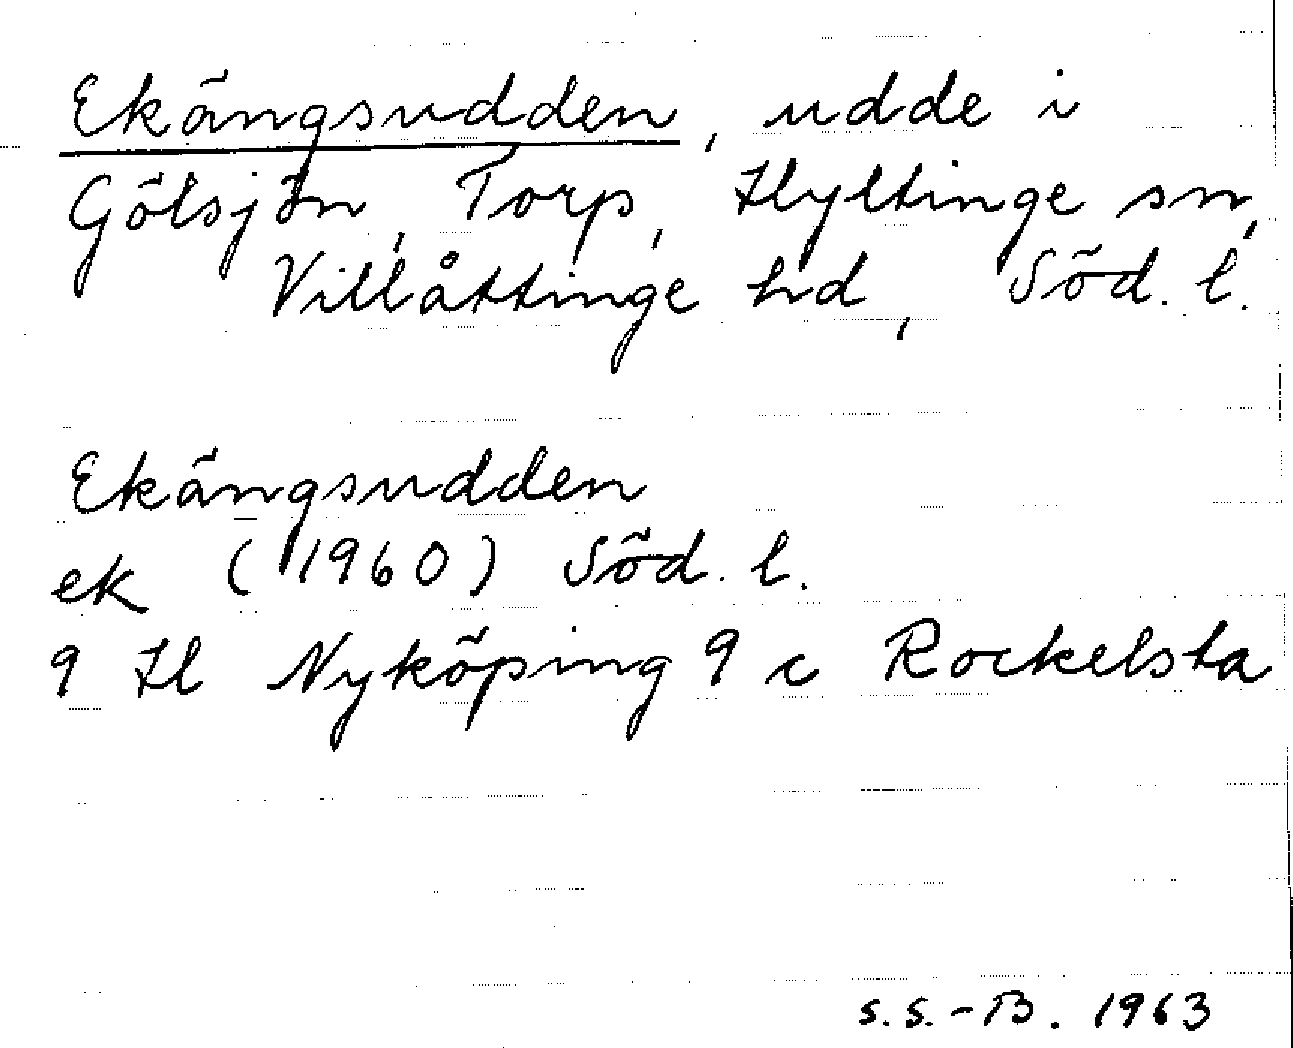 Ekängsudden, udde i
Götsjön, Torp, Hyltinge sn,
Villåttinge hd, Söd. l.
Ekängsudden
ek (1960) Söd. l.
9 H Nyköping 9 c Rockelsta
S.S.-B. 1963